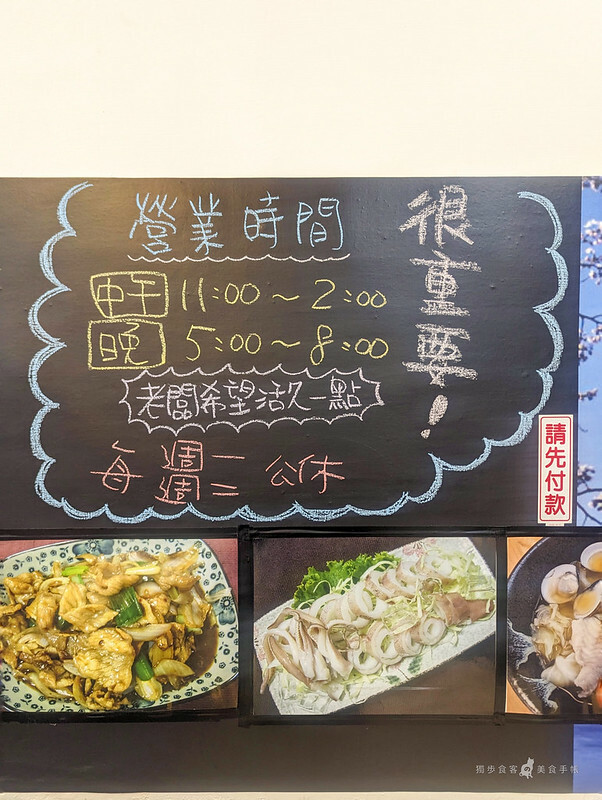 營業時間
中午 11:00～2:00
晚 5:00～8:00
老闆希望活久一點
每週一週二 公休
很重要！
請先付款
獨步食客 美食手帖